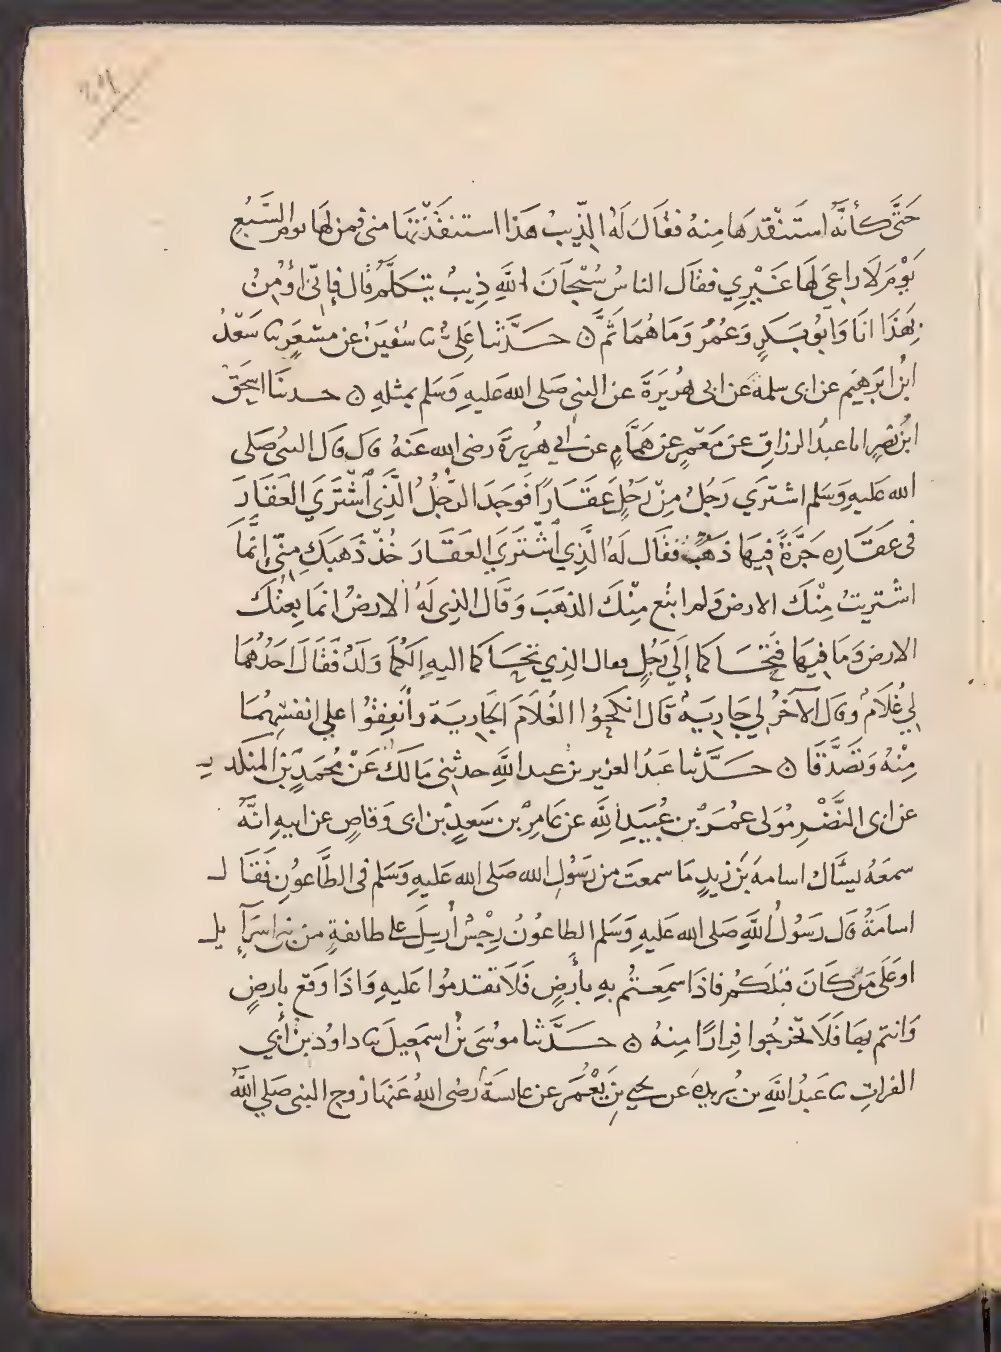 ٢٩
حَتَّى كَأنَّهُ اسْتَنْقَذَهَا مِنهُ فَقَالَ لَهُ الذِّيبُ هَذَا استنقَذْتَهَا منى فمن لهَا يومَ السَّبُعِ
يَوْمَ لَا رَاعِىَ لَهَا غَيْرِي فقال الناسُ سُبْحَانَ اللَّهِ ذِيبٌ يَتكَلَّمُ قال فَإِنِّى أُؤْمِنُ
بِهَذَا انَا وَأَبُو بَكرٍ وَعُمرُ وَمَا هُمَا ثَمَّ ۞ حَدَّثنا عَلِىٌّ ثنا سُفينُ عن مِسْعَرٍ ثنا سَعْدُ
ابنُ ابرَهِيم عن ابى سلمة عن ابى هُرَيْرَةَ عن النبى صَلى الله عَليهِ وَسَلم بمثلهِ ۞ حدثنا اسحَق
ابنُ نصْرٍ انا عبدُ الرزاقِ عن مَعْمَرٍ عن هَمَّامٍ عن أبي هُرَيرةَ رضى الله عَنهُ قال قال النبىُ صَلى
الله عَليهِ وَسَلم اشترَي رَجُلٌ مِنْ رَجُلٍ عَقَارًا فَوَجَدَ الرَّجُلُ الَّذِى اشْتَرَي العَقَارَ
فى عَقَارِهِ جَرَّةً فِيهَا ذَهَبٌ فقَال لَهُ الَّذِي اشْتَرَي العَقَارَ خُذْ ذَهَبَكَ مِنِّى إِنَّمَا
اشْتريتُ مِنْكَ الارضَ وَلم ابتع مِنْكَ الذهَبَ وَقَال الذِى لَهُ الارضُ انمَا بِعتُكَ
الارضَ وَمَا فِيهَا فَتَحَاكما إِلَي رَجُلٍ فقال الذِي تحَاكما اليهِ الَكُمَا وَلَدٌ فَقَالَ احَدُهُمَا
لِي غُلَامٌ وقال الآخَرُ لِي جَارِيَةٌ قَال انكحُوا الغُلَامَ الجَاريَة وأَنفِقُوا علي انفسِهِمَا
مِنْهُ وَتَصَدَّقَا ۞ حَدَّثنا عَبدُ العزيز بنُ عبد اللَّهِ حدثنِى مَالكٌ عَنْ مُحمدِ بن المنكدر
عن ابى النَّضْرِ مَوْلى عمُرَ بن عُبَيدِ اللَّهِ عن عَامِرِ بن سَعدِ بن ابى وَقاصٍ عن ابيهِ انَّهُ
سمعَهُ يسْأل اسامة بَن زيدٍ مَا سمعتَ من رَسُولِ الله صَلى الله عَليهِ وَسَلم فى الطَّاعُونِ فَقَال
اسامَةُ قال رَسُولُ اللَّهِ صَلى الله عَليهِ وَسَلم الطاعوُنُ رِجْسٌ أُرسِلَ على طائفةٍ من بنى اسرَآءِيل
او عَلى مَن كَانَ قبْلكُم فاذَا سَمِعتُم بهِ بأرضٍ فَلَا تقدمُوا عَليهِ وَاذَا وَقع بارضٍ
وَانتم بهَا فَلَا تخْرجُوا فِرارًا مِنهُ ۞ حَدَّثنا موُسَى بنُ اسمَعِيلَ ثنا داودُ بن أبي
الفراتِ ثنا عَبدُ اللَّهِ بن بُرَيدة عن يحي بنِ يَعْمَرَ عن عايشةَ رضى اللهُ عَنهَا زوج النبى صَلي اللَّهُ